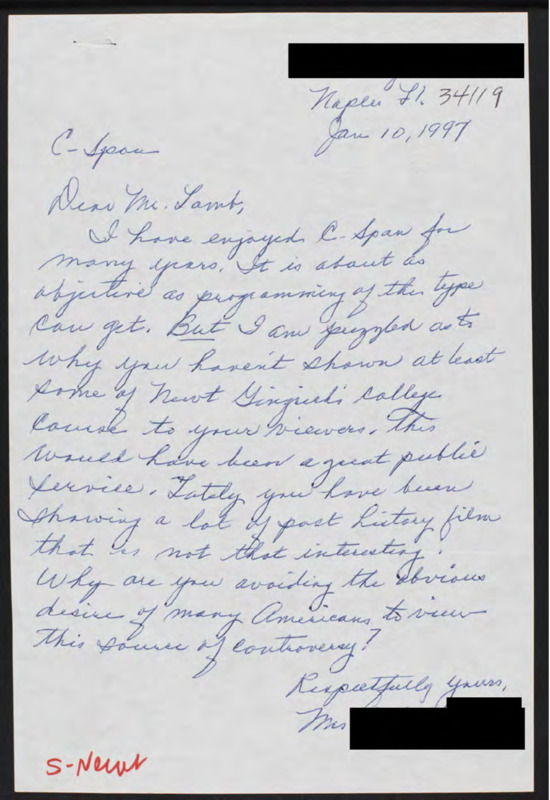 Naples Fl. 34119
Jan 10, 1997
C-Span
Dear Mr. Lamb,
I have enjoyed C-Span for
many years. It is about as
objective as programming of this type
can get. But I am puzzled as to
why you haven't shown at least
some of Newt Gingrich's college
course to your viewers. This
would have been a great public
service. Lately you have been
showing a lot of past history film
that is not that interesting.
Why are you avoiding the obvious
desire of many Americans to view
this source of controversy?
Respectfully yours,
Mrs
S-Newt